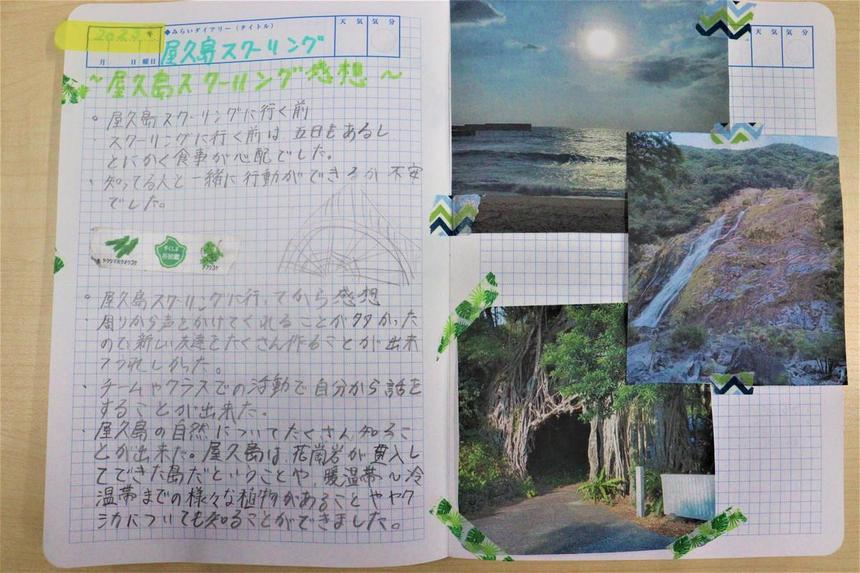 2025年
◆みらいダイアリー（タイトル）
天気 気分
月 日 曜日
屋久島スクーリング
～屋久島スクーリング感想～
。屋久島スクーリングに行く前
スクーリングに行く前は五日もあるし
とにかく食事が心配でした。
・知ってる人と一緒に行動ができるか不安
でした。
。屋久島スクーリングに行ってから感想
・周りから声をかけてくれることが多かった
ので新しい友達をたくさん作ることが出来
てうれしかった。
・チームやクラスでの活動で自分から話を
することが出来た。
・屋久島の自然についてたくさん知るこ
とが出来た。屋久島は花崗岩が貫入し
てできた島だということや、暖温帯～冷
温帯までの様々な植物があることやヤク
シカについても知ることができました。
天気 気分